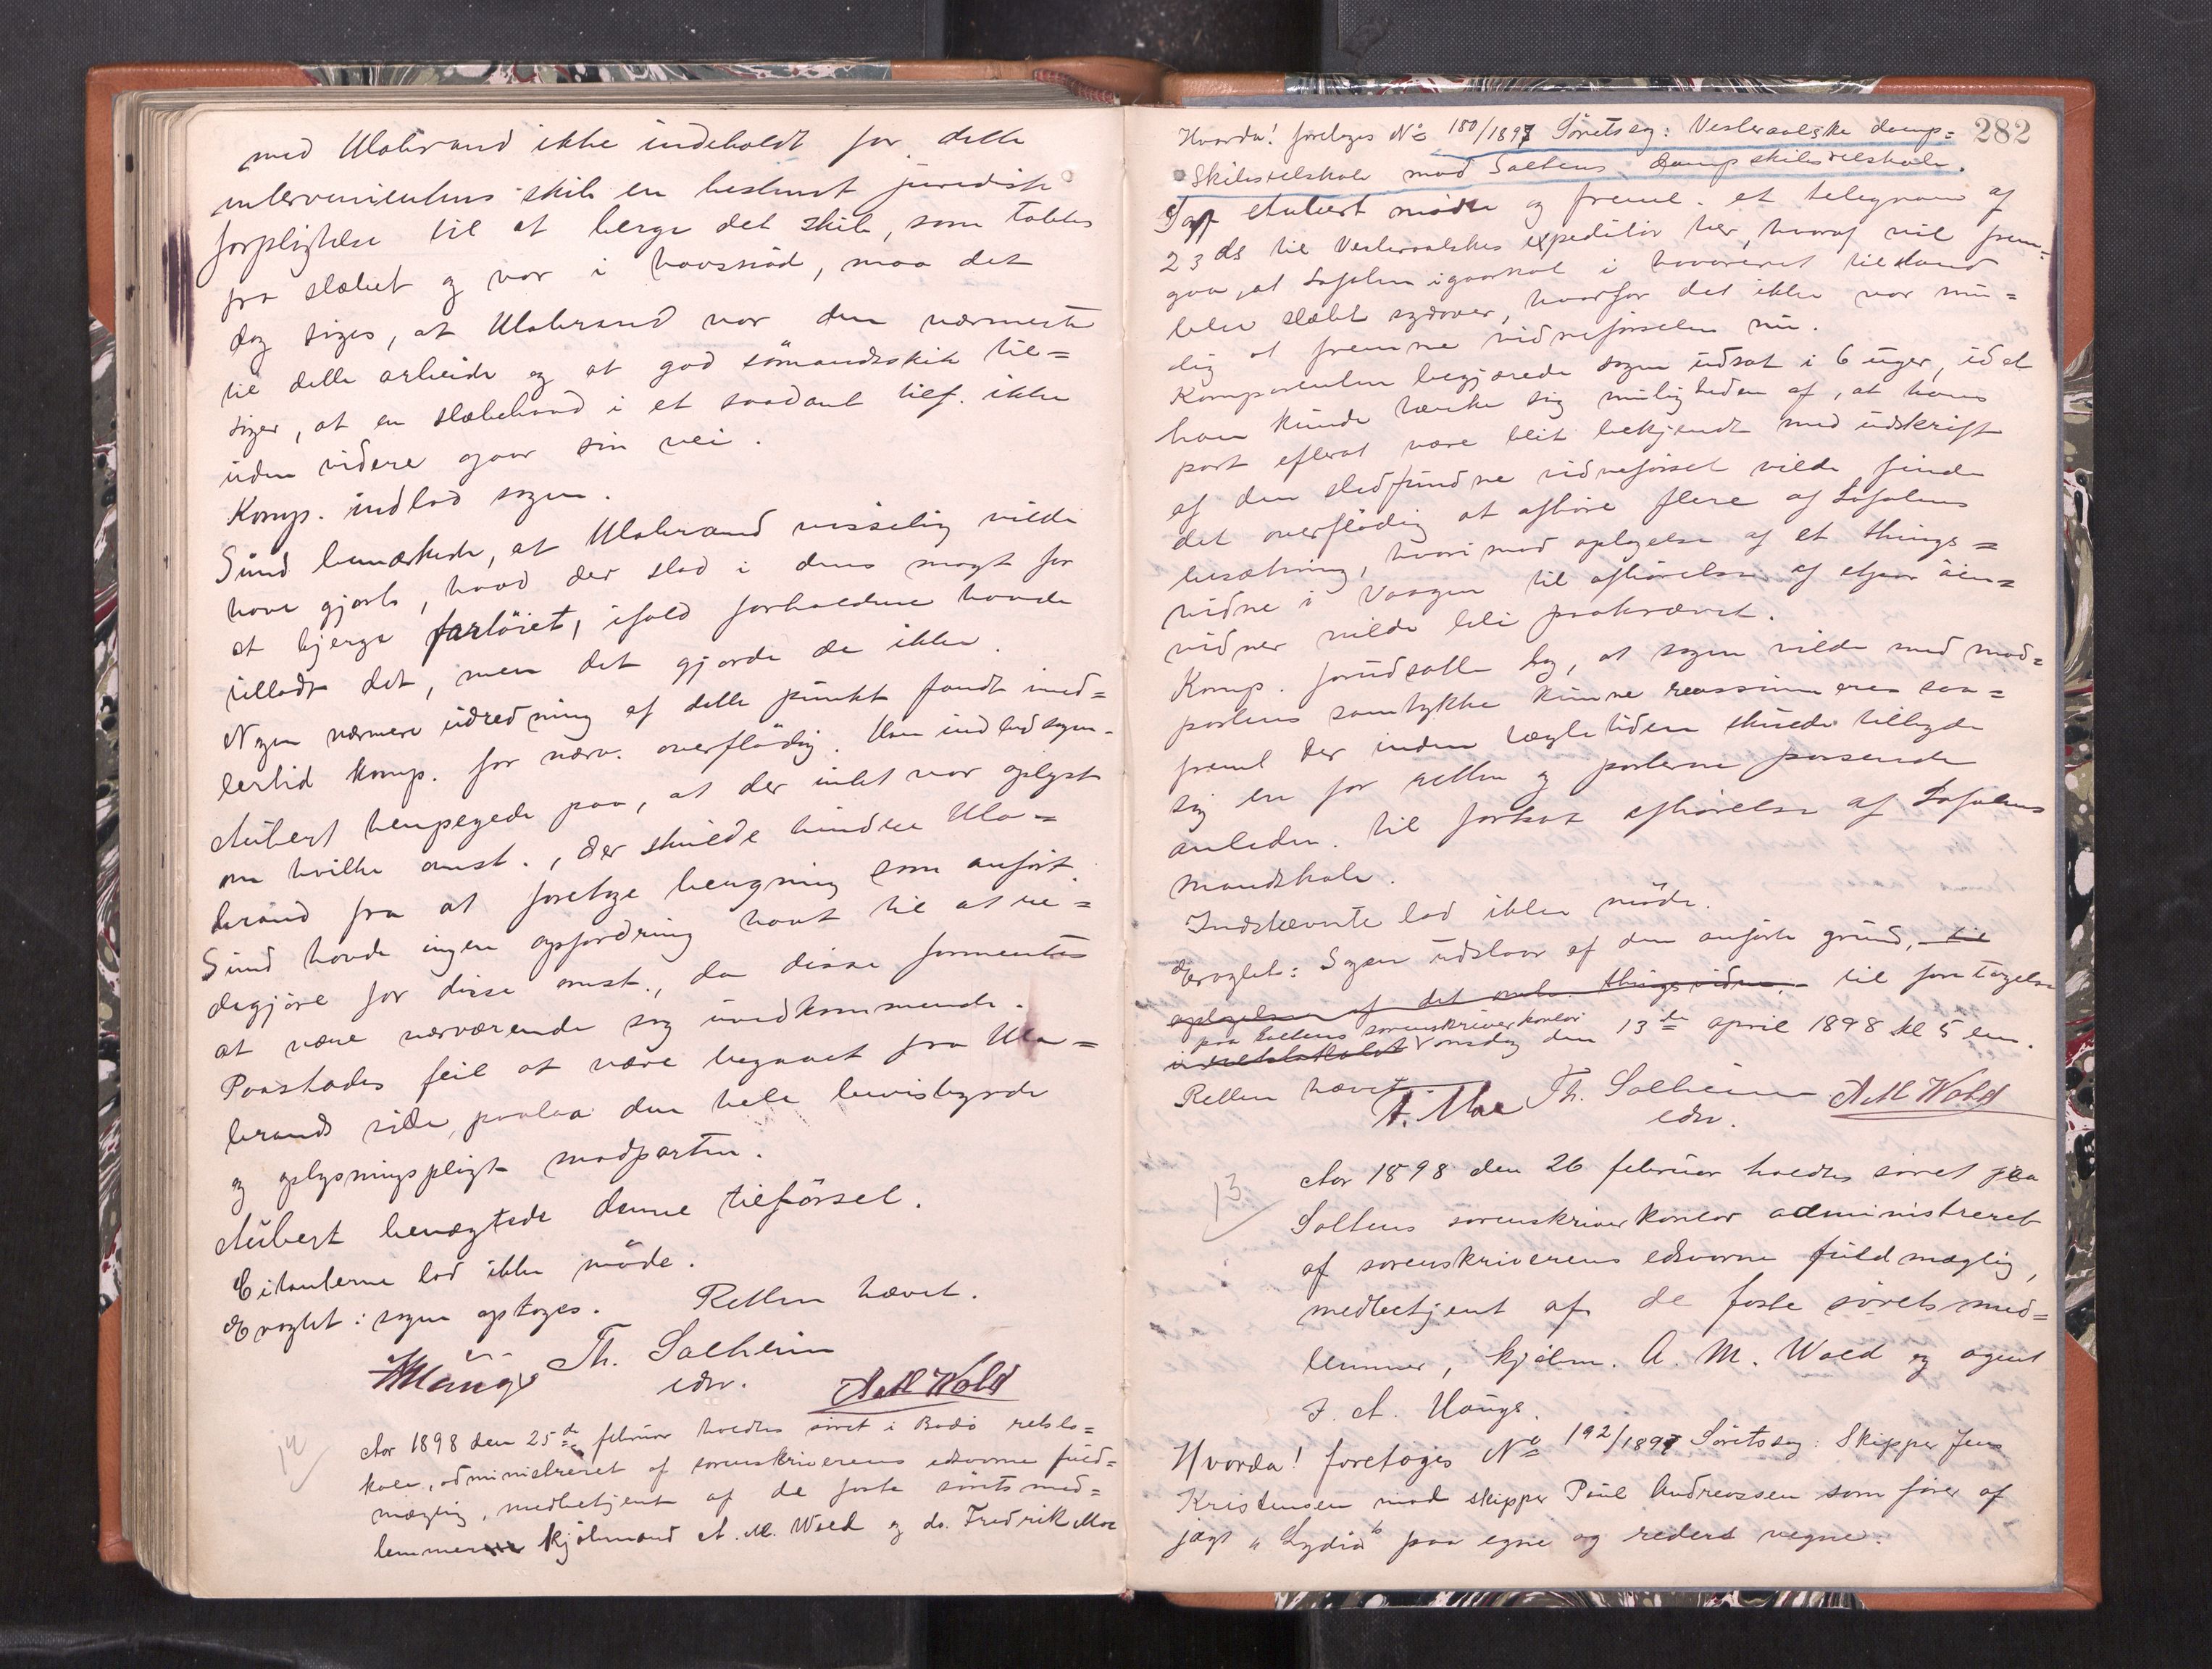 med Ulabrand ikke indeholdt for dette
intervenientens skib en bestemt juridisk
forpligtelse til at berge det skib, som tabtes
fra slæbet og var i havsnød, maa det
dog siges, at Ulabrand var den nærmeste
til dette arbeide og at god sömandsskik til=
siger, at en slæbebaad i et saadant tilf. ikke
uden videre gaar sin vei.
Komp. indlod sagen.
Sund bemærkede, at Ulabrand visselig vilde
have gjort, hvad der stod i dens magt for
at bjerge fartöiet, ifald forholdene havde
tilladt det, men det gjorde de ikke.
Nogen nærmere udredning af dette punkt fandt imid=
lertid komp. for nærv. overflödig. Han indlod sagen.
Aubert henpegede paa, at der intet var oplyst
om hvilke omst., der skulde hindre Ula=
brand fra at foretage bergning som anfört.
Sund havde ingen opfordring havt til at re=
degjöre for disse omst., da disse formentes
at være nærværende sag uvedkommende.
Paastodes feil at være begaaet fra Ula=
brands side, paalaa den hele bevisbyrde
og oplysningspligt modparten.
Aubert benægtede denne tilförsel.
Citanterne lod ikke möde.
Eragtet: sagen optages. Retten hævet.
Hauge Th. Solheim
edsv. A M Wold
14
Aar 1898 den 25de februar holdtes söret i Bodö retslo=
kale, administreret af sorenskriverens edsvorne fuld=
mægtig, medbetjent af de faste sörets med=
lemmer kjöbmand A. M. Wold og do. Fredrik Moe
282
Hvorda! foretoges No 180/1897 Söretssag: Vesteraalske damp=
skibsselskab mod Saltens dampskibsselskab.
Aubert mödte og freml. et telegram af
23 ds til Vesteraalskes expeditör her, hvoraf vil frem=
gaa, at Lofoten igaar i havareret tilstand
blev slæbt sydover, hvorfor det ikke var mu=
lig at fremme vidneförselen nu.
Komparenten begjærede sagen udsat i 6 uger, idet
han kunde tænke sig muligheden af, at hans
part efterat være blit bekjendt med udskrift
af den stedfundne vidneförsel vilde finde
det overflödig at afhöre flere af Lofotens
besætning, hvorimod optagelse af et things=
vidne i Vaagan til afhörelse af etpar öien=
vidner vilde bli paakrævet.
Komp. forudsatte dog, at sagen vilde med mod=
partens samtykke kunne reassumeres saa=
fremt der inden tægtetiden skulde tilbyde
sig en for retten og parterne passende
anledn. til fortsat afhörelse af Lofotens
mandskab.
Indstævnte lod ikke möde.
Eragtet: Sagen udstaar af den anförte grund, til
optagelsen af det omh. thingsvidne, til foretagelse
paa Saltens sorenskriverkontor
i retslokalet onsdag den 13de april 1898 kl 5 em.
Retten hævet.
F. Moe Th. Solheim A M Wold
edsv.
13
Aar 1898 den 26 februar holdtes söret paa
Saltens sorenskriverkontor administreret
af sorenskriverens edsvorne fuldmægtig,
medbetjent af de faste sörets med=
lemmer, kjöbm. A. M. Wold og agent
J. A. Hauge.
Hvorda! foretoges No 192/1897 Söretssag: Skipper Jens
Kristensen mod skipper Paul Andreassen som förer af
jagt "Lydia" paa egne og reders vegne.